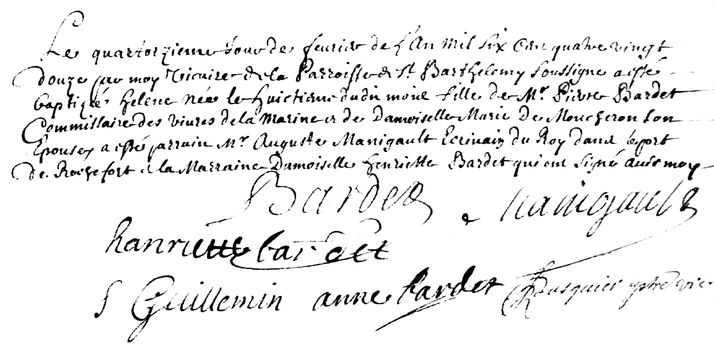 Le quatorzieme Jour de fevrier de l'An mil Six Cens quatre vingt
Douze par moy Vicaire de la Parroisse de St Barthelemy Soussigné a esté
baptizée helene née le huictieme dudit mois fille de Mr. Pierre Bardet
Commissaire des vivres de la Marine & de Damoiselle Marie de Moucheron son
Epouse a esté parrain Mr. Auguste Manigault Ecrivain du Roy dans le port
de Rochefort & la Marraine Damoiselle henriette Bardet qui ont signé avec moy
Bardet Manigault
hanriette bardet
S Guillemin anne bardet Rousquier